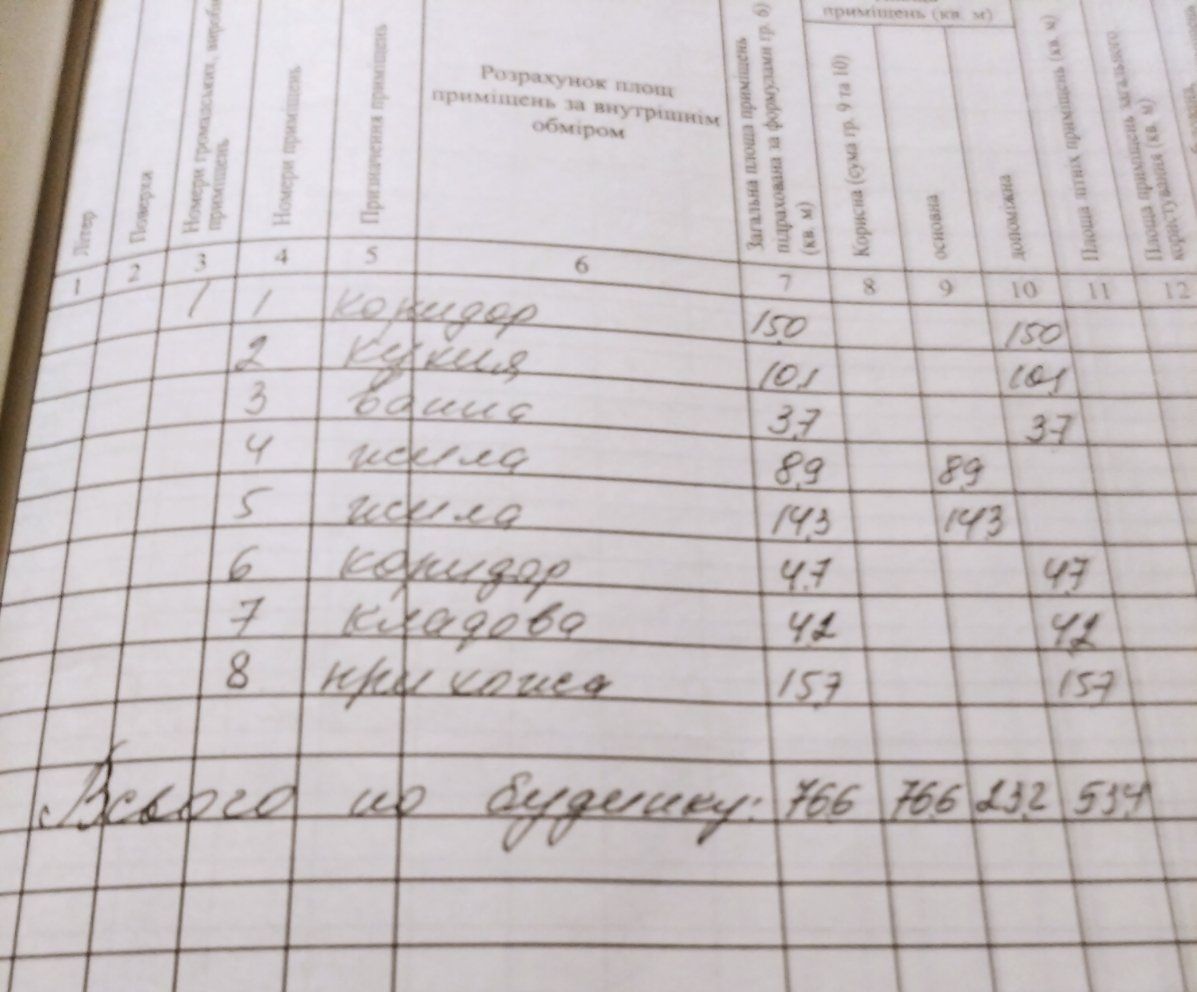 приміщень (кв. м)
Літер
Поверхи
Номери громадських,
приміщень
Номери приміщень
Призначення приміщень
Розрахунок площ
приміщень за внутрішнім
обміром
Загальна площа приміщень
підрахована за формулами гр. 6)
(кв. м)
Корисна (сума гр. 9 та 10)
основна
допоміжна
Площа літніх приміщень (кв. м)
Площа приміщень загального
користування (кв. м)
1 2 3 4 5 6 7 8 9 10 11 12
1 1 коридор 15,0 15,0
2 кухня 10,1 10,1
3 ванна 3,7 3,7
4 жила 8,9 8,9
5 жила 14,3 14,3
6 коридор 4,7 4,7
7 кладова 4,2 4,2
8 прихожа 15,7 15,7
Всього по будинку: 76,6 76,6 23,2 53,4